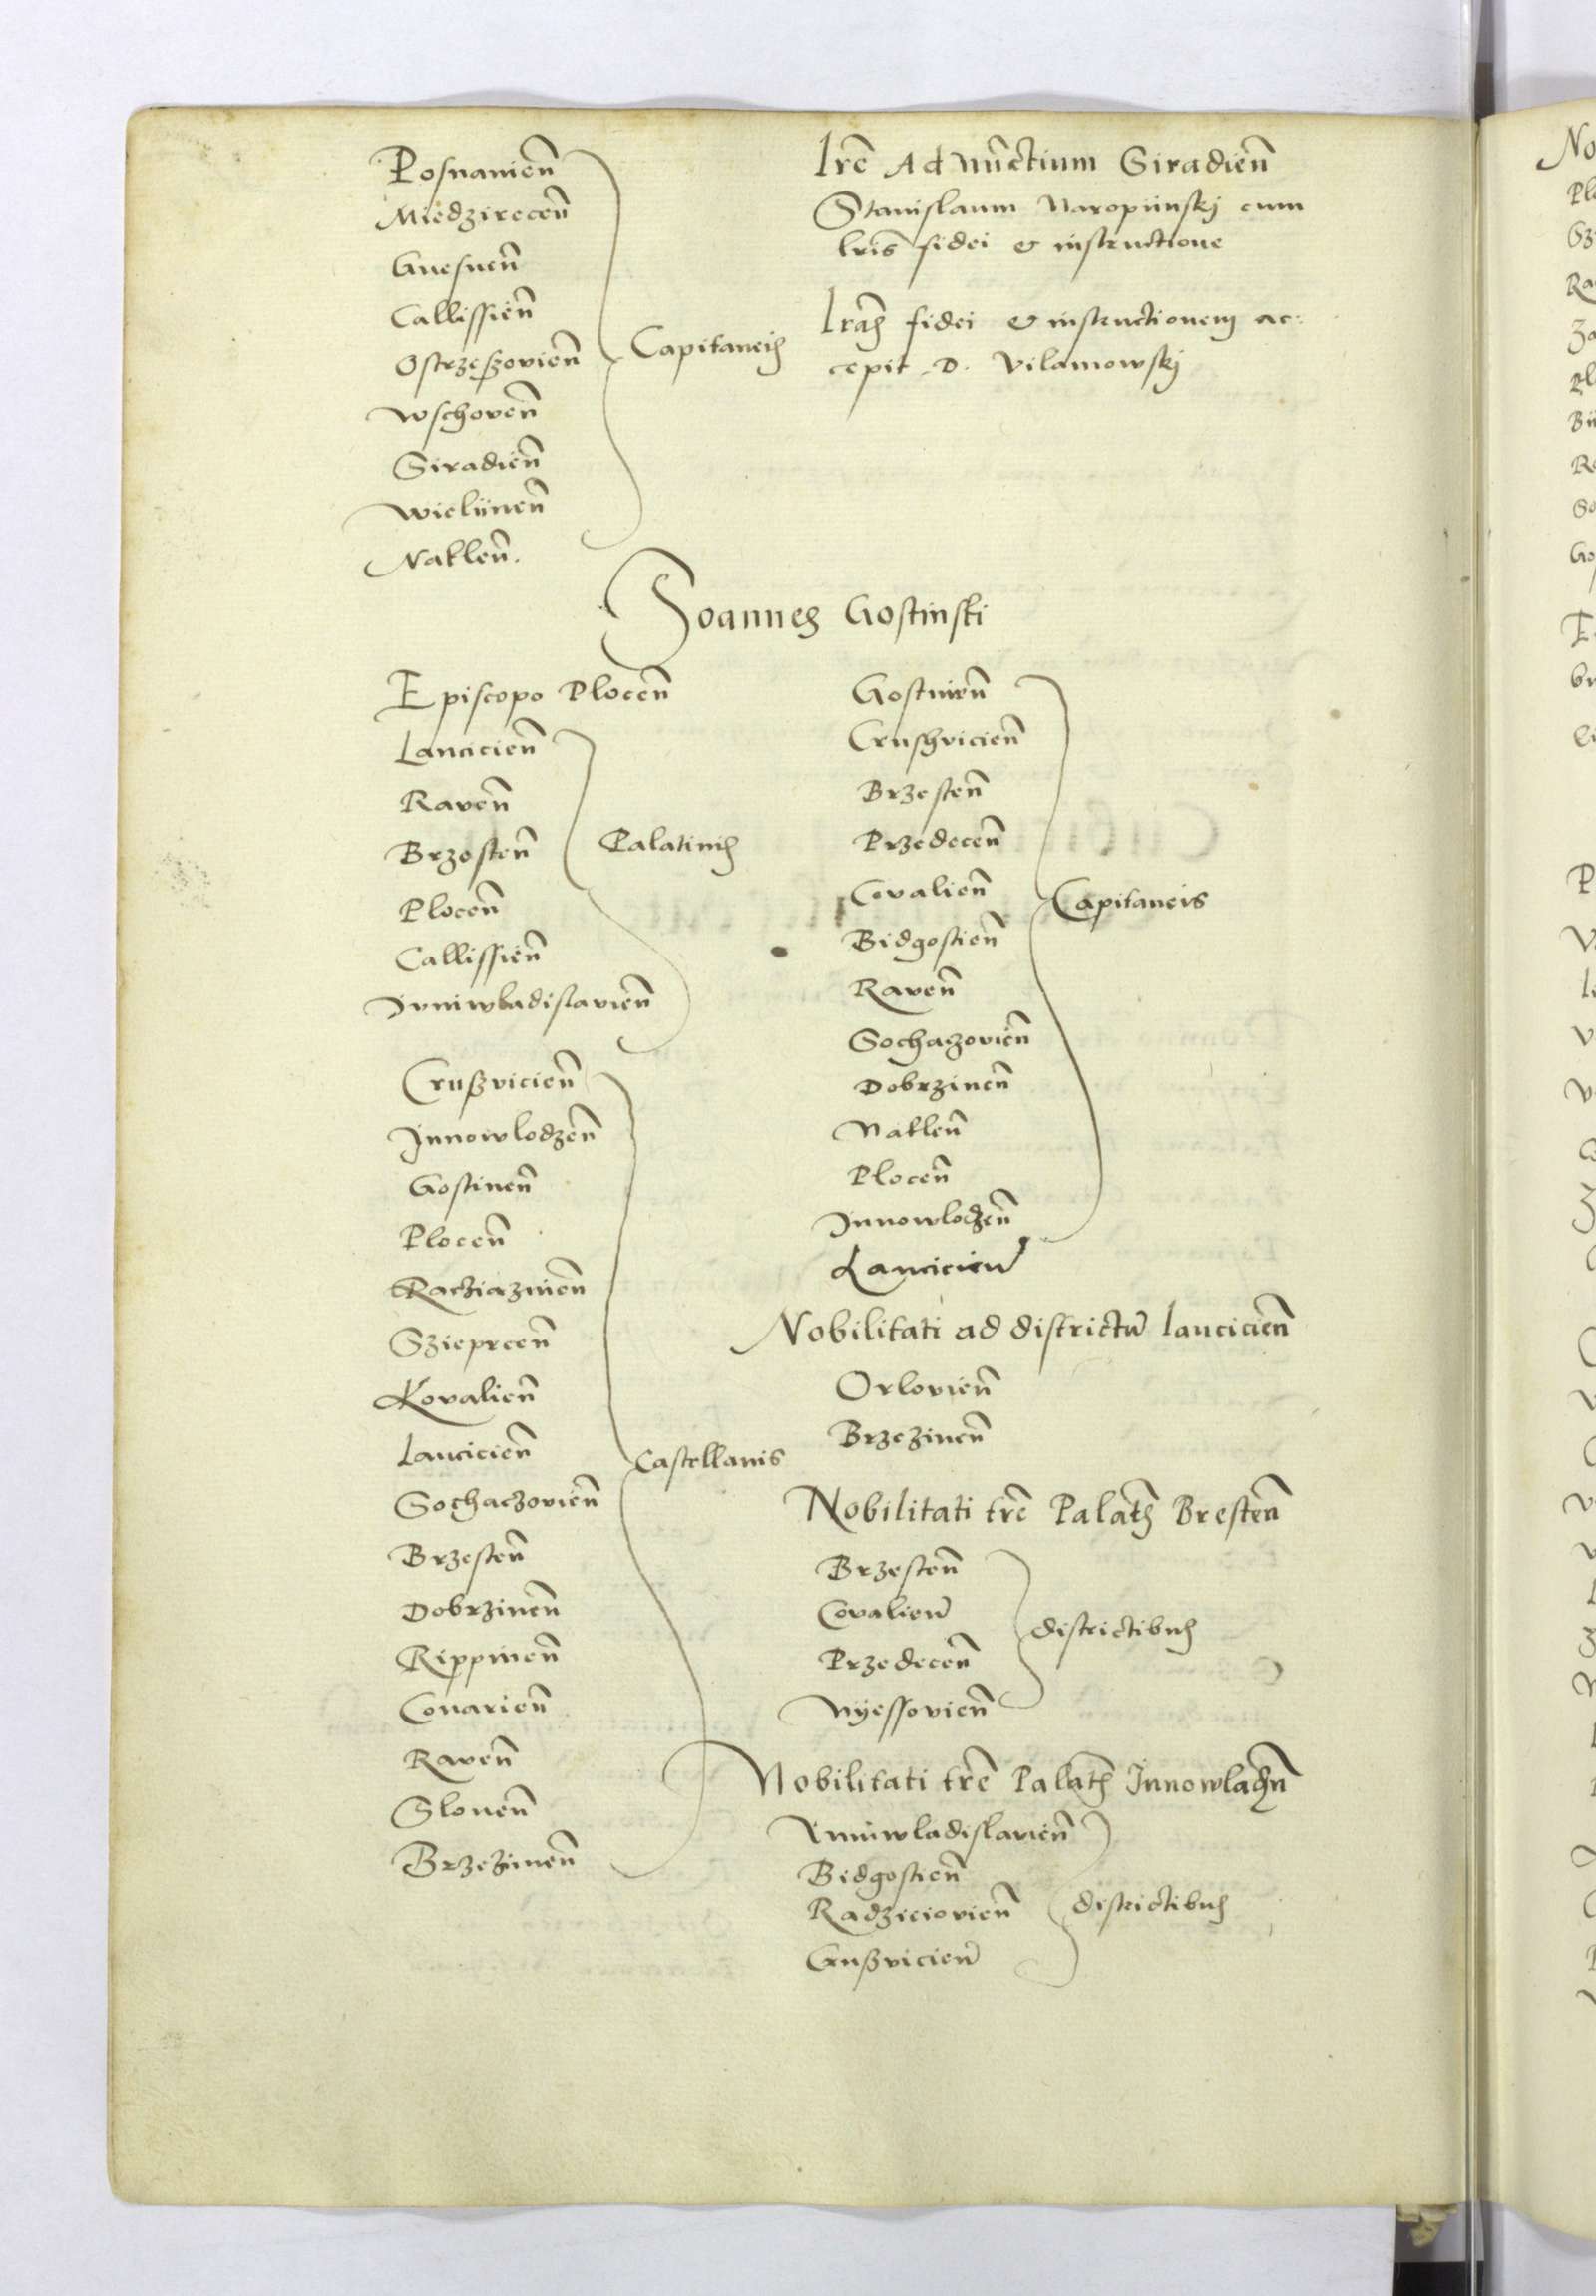 Posnanien̄
Miedzirecen̄
Gnesnen̄
Callissien̄
Ostrzeszovien̄
Wschoven̄
Siradien̄
Wieliinen̄
Naklen̄.
Capitaneis
Lr̄e Ad nūctium Siradien̄
Stanislaum Naropiinskj cum
lr̄is fidei & instructione
Lr̄as fidei & instructionem ac:
cepit D. Vilamowskj
Joannes Gostinski
Episcopo Plocen̄
Lancicien̄
Raven̄
Brzesten̄
Plocen̄
Callissien̄
Juniwladislavien̄
Palatinis
Crußvicien̄
Jnnowlodzen̄
Gostinen̄
Plocen̄
Racziazinen̄
Szieprcen̄
Kovalien̄
Lancicien̄
Sochaczovien̄
Brzesten̄
Dobrzinen̄
Rippinen̄
Conarien̄
Raven̄
Slonen̄
Brzezinen̄
Castellanis
Gostinen̄
Cruschvicien̄
Brzesten̄
Przedecen̄
Covalien̄
Bidgostien̄
Raven̄
Sochaczovien̄
Dobrzinen̄
Naklen̄
Plocen̄
Jnnowlodzen̄
Lancicien̄
Capitaneis
Nobilitati ad districtū lancicien̄
Orlovien̄
Brzezinen̄
Nobilitati tr̄e Palat̄s Bresten̄
Brzesten̄
Covalien̄
Przedecen̄
Nyessovien̄
districtibus
Nobilitati tr̄e Palat̄s Jnnowladn̄
Juniwladislavien̄
Bidgostien̄
Radzieiovien̄
Crußvicien̄
districtibus